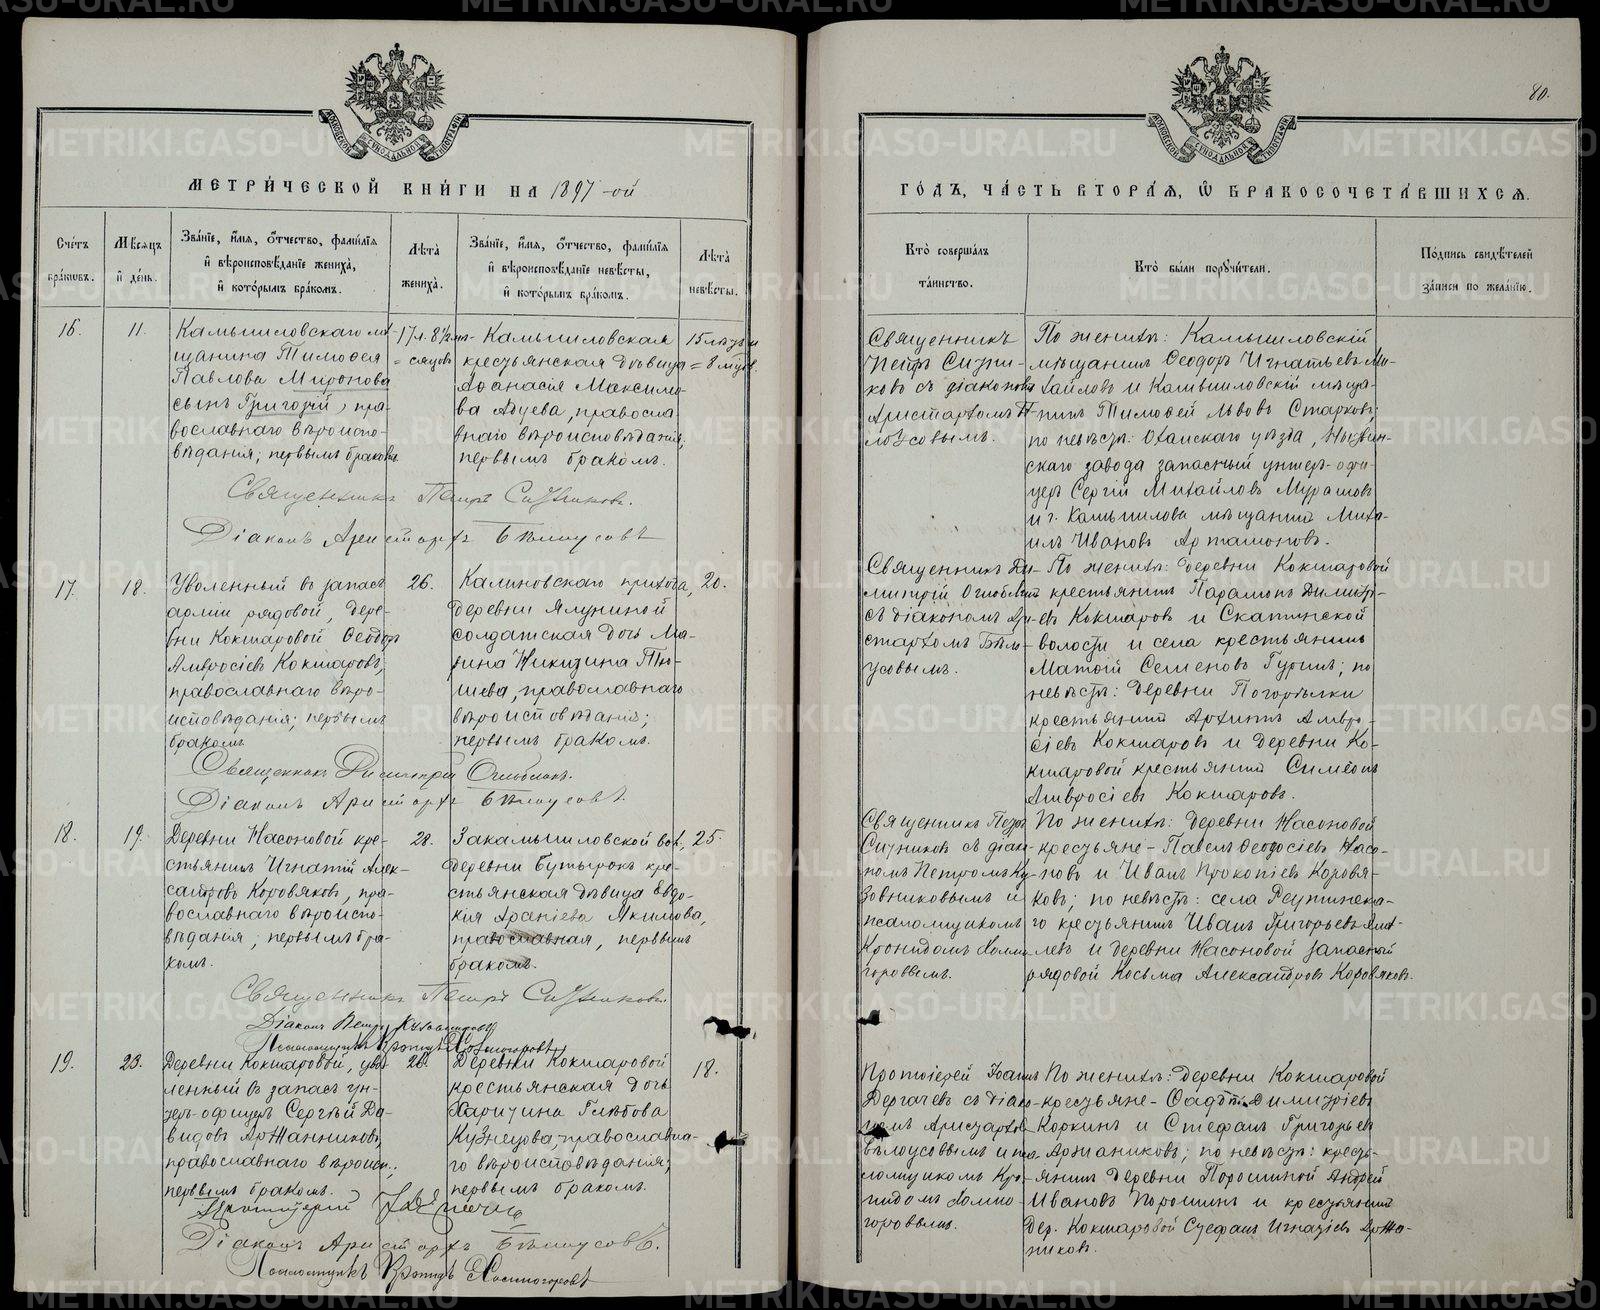 МЕТРИ́ЧЕСКОЙ КНИ́ГИ НА 1897-ой
Сче́тъ бра́ковъ.
Мѣ́сяцъ и҆ де́нь.
Зва́нїе, и҆́мя, ѻ҆́тчество, фами́лїя и҆ вѣроисповѣ́данїе жениха̀, и҆ кото́рымъ бра́комъ.
Лѣ́та жениха̀.
Зва́нїе, и҆́мя, ѻ҆́тчество, фами́лїя и҆ вѣроисповѣ́данїе невѣ́сты, и҆ кото́рымъ бра́комъ.
Лѣ́та невѣ́сты.
16.
11.
Камышловскаго мѣ-
щанина Тимоѳея
Павлова Миронова
сынъ Григорій, пра-
вославнаго вѣроиспо-
вѣданія; первымъ бракомъ
17 л. 8½ мѣ-
сяцовъ
Камышловская
крестьянская дѣвица
Аѳанасія Максимо-
ва Авдеева, правосла-
внаго вѣроисповѣданія,
первымъ бракомъ.
15 лѣтъ и
8 мѣс.
Священникъ Петръ Ситниковъ.
Діаконъ Аристархъ Бѣлоусовъ
17.
18.
Уволенный въ запасъ
арміи рядовой, дере-
вни Кокшаровой Ѳеодоръ
Амвросіевъ Кокшаровъ,
православнаго вѣро-
исповѣданія; первымъ
бракомъ
26.
Калиновскаго прихода,
деревни Ялуниной
солдатская дочь Ма-
рина Никитина Тю-
шева, православнаго
вѣроисповѣданія;
первымъ бракомъ.
20.
Священникъ Димитрій
Діаконъ Аристархъ Бѣлоусовъ.
18.
19.
Деревни Насоновой кре-
стьянинъ Игнатій Алек-
сандровъ Коровяковъ, пра-
вославнаго вѣроиспо-
вѣданія; первымъ бра-
комъ.
28.
Закамышловской вол.,
деревни Бутырокъ кре-
стьянская дѣвица Евдо-
кія Акимова,
православная, первымъ
бракомъ.
25.
Священникъ Петръ Ситниковъ.
Діаконъ Петръ Кузовниковъ
Псаломщикъ Кронидъ Холмогоровъ
19.
23.
Деревни Кокшаровой, уво-
ленный въ запасъ ун-
теръ-офицеръ Сергѣй Да-
видовъ Аржанниковъ,
православнаго вѣроисп.,
первымъ бракомъ.
26.
Деревни Кокшаровой
крестьянская дочь
Харитина Глѣбова
Кузнецова, православна-
го вѣроисповѣданія,
первымъ бракомъ.
18.
Протоіерей
Діаконъ Аристархъ Бѣлоусовъ.
Псаломщикъ Кронидъ Холмогоровъ
80.
ГО́ДЪ, ЧА́СТЬ ВТОРА́Я, Ѡ҆ БРАКОСОЧЕТА́ВШИХСЯ.
Кто̀ соверша́лъ та́инство.
Кто̀ бы́ли поручи́тели.
По́дпись свидѣ́телей за́писи по жела́нїю.
Священникъ
Петръ Ситни-
ковъ съ діакономъ
Аристархомъ Бѣ-
лоусовымъ.
По женихѣ: Камышловскій
мѣщанинъ Ѳеодоръ Игнатьевъ Ми-
хайловъ и Камышловскій мѣща-
нинъ Тимоѳей Львовъ Старковъ;
по невѣстѣ: Оханскаго уѣзда, Нытвин-
скаго завода запасный унтеръ-офи-
церъ Сергій Михайловъ Мурашовъ
и г. Камышлова мѣщанинъ Миха-
илъ Ивановъ Артамоновъ.
Священникъ Ди-
митрій
съ діакономъ Ари-
стархомъ Бѣло-
усовымъ.
По женихѣ: деревни Кокшаровой
крестьянинъ Парамонъ Димитрі-
евъ Кокшаровъ и Скатинской
волости и села крестьянинъ
Матѳій Семеновъ Гуринъ; по
невѣстѣ: деревни Погорѣлки
крестьянинъ Архипъ Амвро-
сіевъ Кокшаровъ и деревни Ко-
кшаровой крестьянинъ Симеонъ
Амвросіевъ Кокшаровъ.
Священникъ Петръ
Ситниковъ съ діако-
номъ Петромъ Ку-
зовниковымъ и
псаломщикомъ
Кронидомъ Холмо-
горовымъ.
По женихѣ: деревни Насоновой
крестьяне – Павелъ Ѳеодосіевъ Насо-
новъ и Иванъ Прокопіевъ Коровя-
ковъ; по невѣстѣ: села Реутинска-
го крестьянинъ Иванъ Григорьевъ
и деревни Насоновой запасный
рядовой Косьма Александровъ Коровяковъ.
Протоіерей Іоаннъ
Дергачевъ съ діако-
номъ Аристархомъ
Бѣлоусовымъ и пса-
ломщикомъ Кро-
нидомъ Холмо-
горовымъ.
По женихѣ: деревни Кокшаровой
крестьяне – Ѳадѣй Димитріевъ
Коркинъ и Стефанъ Григорьевъ
Аржаниковъ; по невѣстѣ: кресть-
янинъ деревни Порошиной Андрей
Ивановъ Порошинъ и крестьянинъ
дер. Кокшаровой Стефанъ Игнатіевъ Аржа-
никовъ.
METRIKI.GASO-URAL.RU